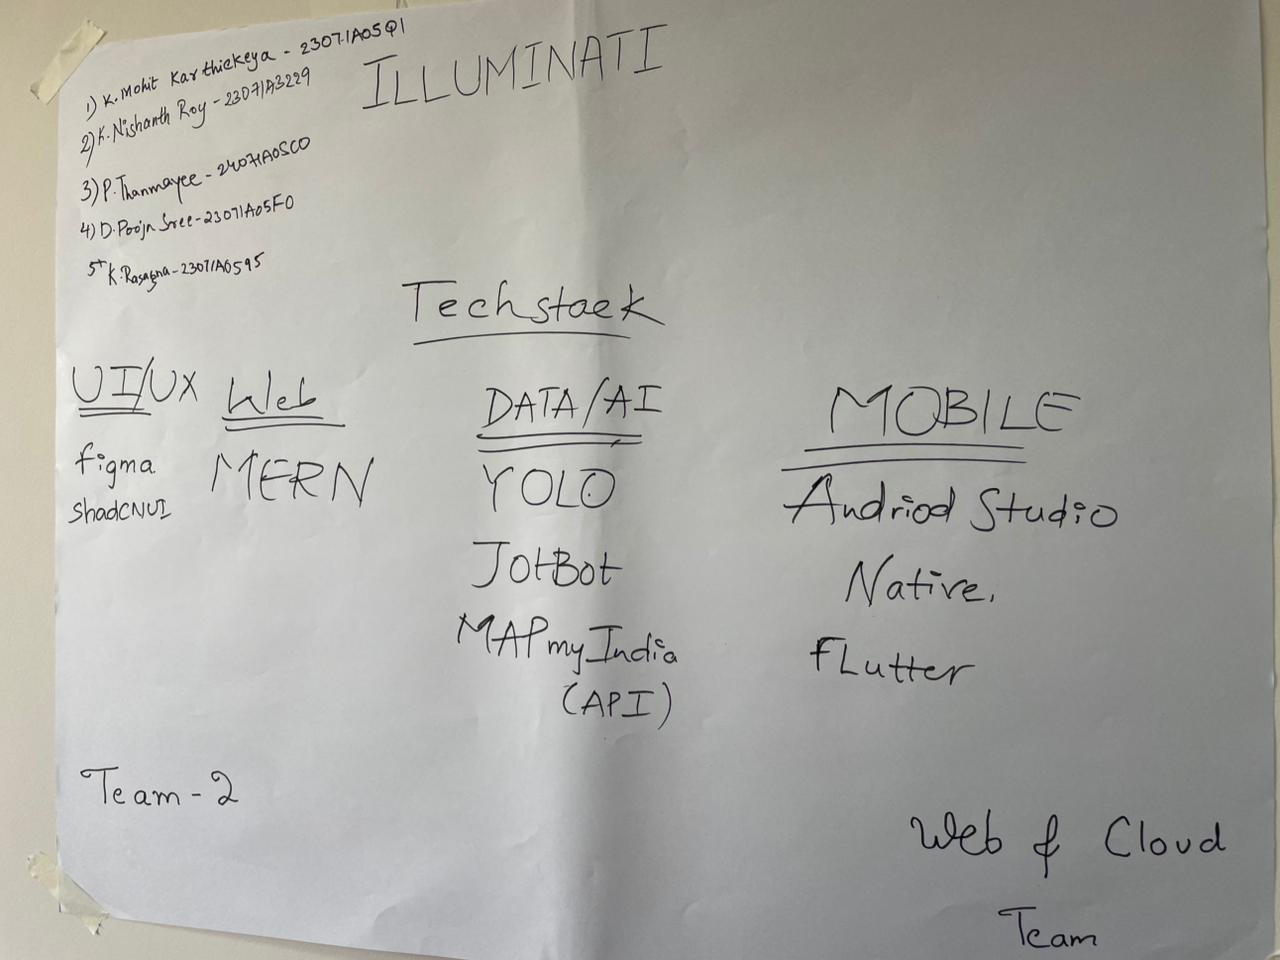 ILLUMINATI
1) K. Mohit Karthickeya - 23071A05Q1
2) K. Nishanth Roy - 23071A3229
3) P. Thanmayee - 24071A05C0
4) D. Pooja Sree - 23071A05F0
5) K. Rasagna - 23071A0595
Techstack
UI/UX
figma
shadCNUI
Web
MERN
DATA/AI
YOLO
JotBot
MAPmyIndia
(API)
MOBILE
Andriod Studio
Native.
FLutter
Team - 2
Web & Cloud
Team